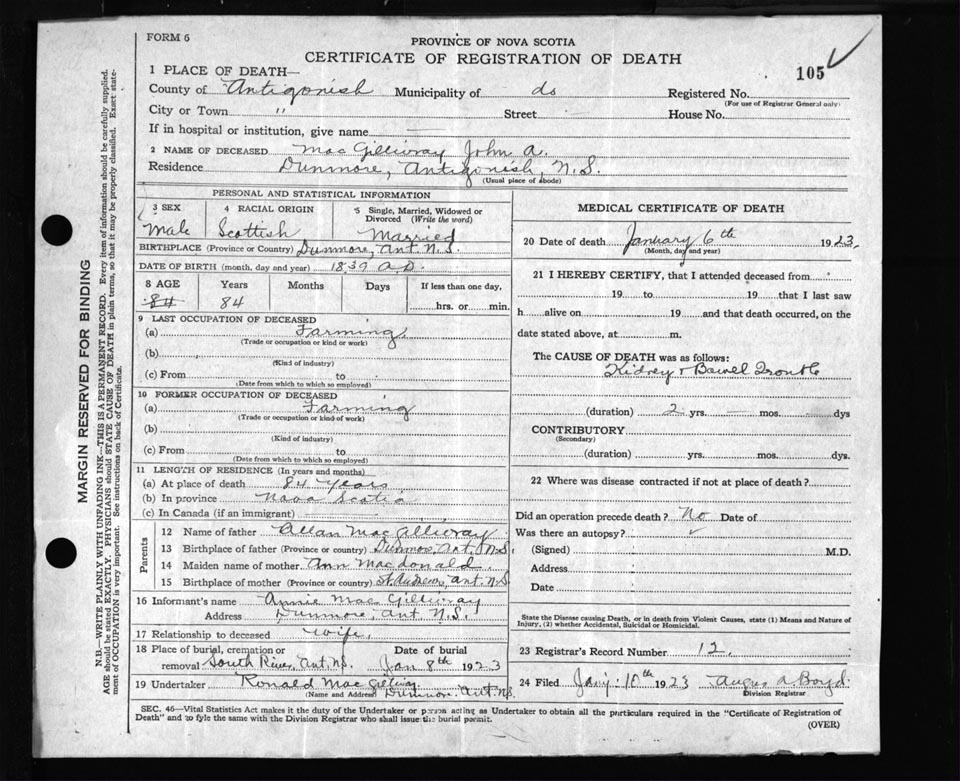 FORM 6
PROVINCE OF NOVA SCOTIA
CERTIFICATE OF REGISTRATION OF DEATH
105
1 PLACE OF DEATH—
County of Antigonish Municipality of do Registered No.
(For use of Registrar General only)
City or Town " Street House No.
If in hospital or institution, give name —
2 NAME OF DECEASED MacGillivray John A.
Residence Dunmore, Antigonish, N.S.
(Usual place of abode)
PERSONAL AND STATISTICAL INFORMATION
3 SEX 4 RACIAL ORIGIN 5 Single, Married, Widowed or Divorced (Write the word)
Male Scottish Married
BIRTHPLACE (Province or Country) Dunmore, Ant. N.S.
DATE OF BIRTH (month, day and year) 1839 A.D.
8 AGE Years Months Days If less than one day,
84 84 hrs. or min.
9 LAST OCCUPATION OF DECEASED
(a) Farming
(Trade or occupation or kind or work)
(b)
(Kind of industry)
(c) From to
(Date from which to which so employed)
10 FORMER OCCUPATION OF DECEASED
(a) Farming
(Trade or occupation or kind of work)
(b)
(Kind of industry)
(c) From to
(Date from which to which so employed)
11 LENGTH OF RESIDENCE (In years and months)
(a) At place of death 84 years
(b) In province Nova Scotia
(c) In Canada (if an immigrant)
Parents
12 Name of father Allan MacGillivray
13 Birthplace of father (Province or country) Dunmore, Ant. N.S.
14 Maiden name of mother Ann Macdonald.
15 Birthplace of mother (Province or country) St. Andrews, Ant. N.S.
16 Informant's name Annie MacGillivray
Address Dunmore, Ant N.S.
17 Relationship to deceased wife,
18 Place of burial, cremation or removal South River, Ant. N.S. Date of burial Jan 8th 1923
19 Undertaker Ronald MacGillivray
(Name and Address Dunmore. Ant. N.S.
MEDICAL CERTIFICATE OF DEATH
20 Date of death January 6th 1923.
(Month, day and year)
21 I HEREBY CERTIFY, that I attended deceased from
19 to 19 that I last saw
h alive on 19 and that death occurred, on the
date stated above, at m.
The CAUSE OF DEATH was as follows:
Kidney & Bowel Trouble
(duration) 2 yrs. — mos. — dys
CONTRIBUTORY
(Secondary)
(duration) yrs. mos. dys.
22 Where was disease contracted if not at place of death?
Did an operation precede death? No Date of
Was there an autopsy?
(Signed) M.D.
Address
Date
State the Disease causing Death, or in death from Violent Causes, state (1) Means and Nature of
Injury, (2) whether Accidental, Suicidal or Homicidal.
23 Registrar's Record Number 12.
24 Filed Jany: 10th 1923 Angus A. Boyd.
Division Registrar
SEC. 46—Vital Statistics Act makes it the duty of the Undertaker or person acting as Undertaker to obtain all the particulars required in the "Certificate of Registration of
Death" and to fyle the same with the Division Registrar who shall issue the burial permit.
(OVER)
MARGIN RESERVED FOR BINDING
N.B.—WRITE PLAINLY WITH UNFADING INK—THIS IS A PERMANENT RECORD. Every item of information should be carefully supplied.
AGE should be stated EXACTLY. PHYSICIANS should STATE CAUSE OF DEATH in plain terms, so that it may be properly classified. Exact state-
ment of OCCUPATION is very important. See instructions on back of Certificate.